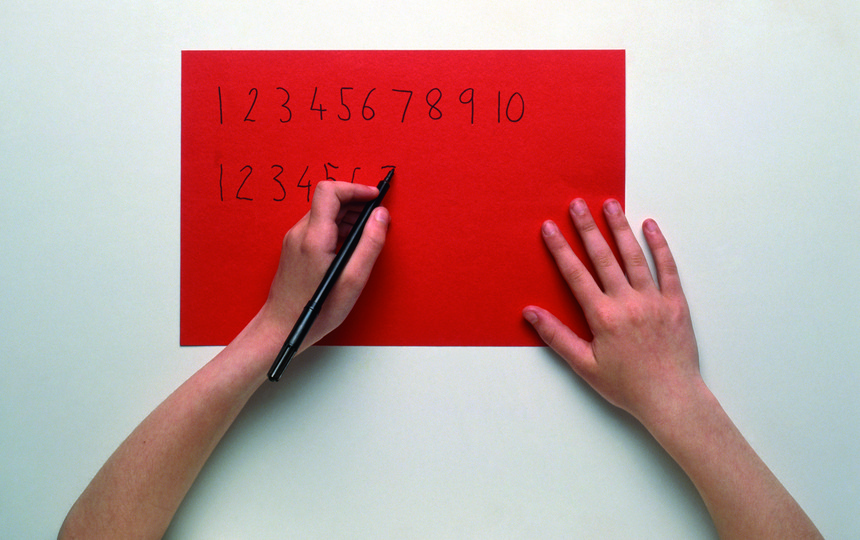 1 2 3 4 5 6 7 8 9 10
1 2 3 4 5 6 7